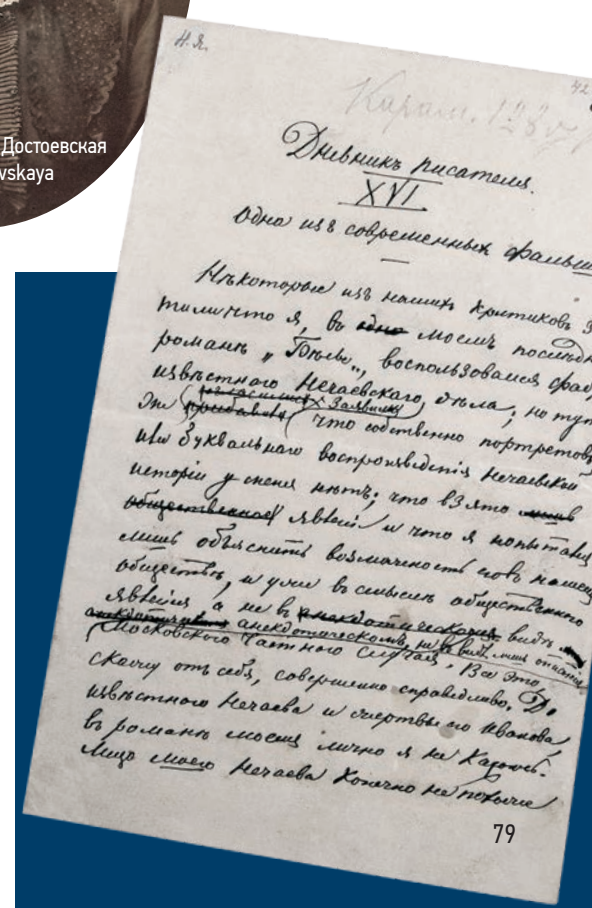 Достоевская
vskaya
Н. Я.
42
Дневникъ писателя.
XVI
Одна изъ современныхъ фальше
Нѣкоторые изъ нашихъ критиковъ з
тили что я, въ одно моемъ послѣдн
романѣ „Бѣсы", воспользовался фаб
извѣстнаго Нечаевскаго дѣла; но тут
же заявили
что собственно портретовъ
или буквальнаго воспроизведенія Нечаевской
исторіи у меня нѣтъ; что взято
общественное явленіе и что я попытался
лишь объяснить возможность его въ нашем
обществѣ, и уже въ смыслѣ общественнаго
явленія а не въ видѣ
анекдотическомъ, не въ видѣ лишь описанія
Московскаго частнаго случая. Все это,
скажу отъ себя, совершенно справедливо. До
извѣстнаго Нечаева и жертвы его Иванова,
въ романѣ моемъ лично я не касаюсь.
Лицо моего Нечаева конечно не похоже
79